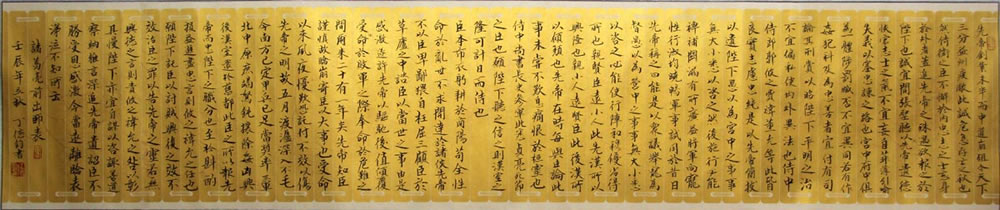 先帝創業未半而中道崩殂今天下
三分益州疲敝此誠危急存亡之秋也
然侍衛之臣不懈於內忠志之士忘身
於外者蓋追先帝之殊遇欲報之於
陛下也誠宜開張聖聽以光先帝遺德
恢弘志士之氣不宜妄自菲薄引喻
失義以塞忠諫之路也宮中府中俱
為一體陟罰臧否不宜異同若有作
姦犯科及為忠善者宜付有司
論其刑賞以昭陛下平明之治
不宜偏私使內外異法也侍中
侍郎郭攸之費禕董允等此皆
良實志慮忠純是以先帝簡拔
以遺陛下愚以為宮中之事事
無大小悉以咨之然後施行必能
裨補闕漏有所廣益將軍向寵
性行淑均曉暢軍事試用於昔日
先帝稱之曰能是以眾議舉寵為
督愚以為營中之事事無大小悉
以咨之必能使行陣和穆優劣得
所也親賢臣遠小人此先漢所以
興隆也親小人遠賢臣此後漢所
以傾頹也先帝在時每與臣論此
事未嘗不歎息痛恨於桓靈也
侍中尚書長史參軍此悉貞亮死節
之臣也願陛下親之信之則漢室之
隆可計日而待也
臣本布衣躬耕於南陽苟全性
命於亂世不求聞達於諸侯先帝
不以臣卑鄙猥自枉屈三顧臣於
草廬之中諮臣以當世之事由是
感激遂許先帝以驅馳後值傾覆
受任於敗軍之際奉命於危難之
間爾來二十有一年矣先帝知臣
謹慎故臨崩寄臣以大事也受命
以來夙夜憂歎恐託付不效以傷
先帝之明故五月渡瀘深入不毛
今南方已定甲兵已足當獎率三軍
北定中原庶竭駑鈍攘除姦凶興
復漢室還於舊都此臣所以報先
帝而忠陛下之職分也至於斟酌
損益進盡忠言則攸之禕允之任也
願陛下託臣以討賊興復之效不
效治臣之罪以告先帝之靈若無
興德之言則責攸之禕允等之慢以彰
其咎陛下亦宜自謀以諮諏善道
察納雅言深追先帝遺詔臣不
勝受恩感激今當遠離臨表
涕泣不知所云
諸葛亮前出師表
壬辰年之秋